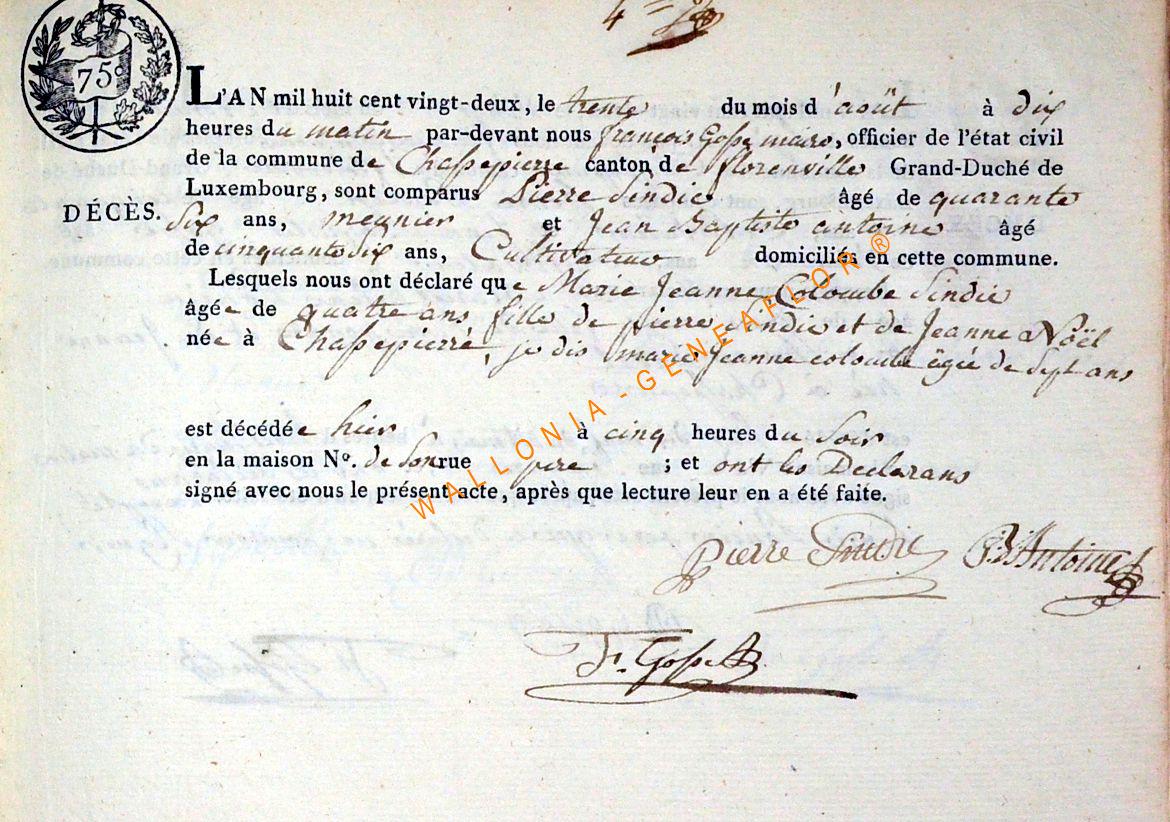 4
75c
L'AN mil huit cent vingt-deux, le trente du mois d'août à dix
heures du matin par-devant nous françois Gosse maire, officier de l'état civil
de la commune de Chassepierre canton de florenville Grand-Duché de
Luxembourg, sont comparus Pierre Sindic âgé de quarante
DÉCÈS.
Six ans, meunier et Jean Baptiste antoine âgé
de cinquante dix ans, Cultivateur domiciliés en cette commune.
Lesquels nous ont déclaré que Marie Jeanne Colombe Sindic
âgée de quatre ans fille de pierre Sindic et de Jeanne Noël
née à Chassepierre, je dis marie Jeanne colombe âgée de Sept ans
est décédée hier à cinq heures du Soir
en la maison No. de son rue pere ; et ont les Declarans
signé avec nous le présent acte, après que lecture leur en a été faite.
Pierre Sindic JB Antoine
F. Gosse
WALLONIA - GENEAFLOR ®